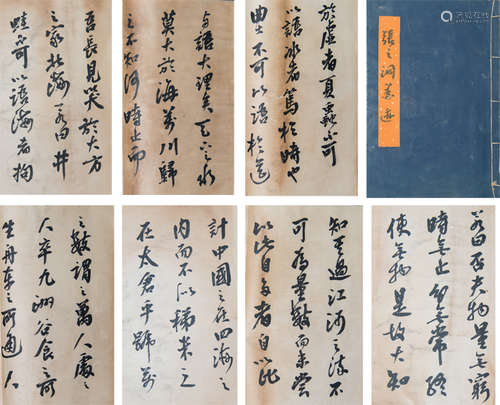 張之洞墨迹
於虛者夏蟲不可
以語冰者篤於時也
曲士不可以語於道
與語大理矣天下之水
莫大於海萬川歸
之不知何時止而
吾長見笑於大方
之家北海若曰井
蛙不可以語海者拘
若曰否夫物量無窮
時無止分無常終
使無物是故大知
知其過江河之流不
可為量數而未嘗
以此自多者自以比
計中國之在四海之
內而不似稊米之
在太倉乎號萬
之數謂之萬人處之
人卒九洲谷食之所
生舟車之所通人